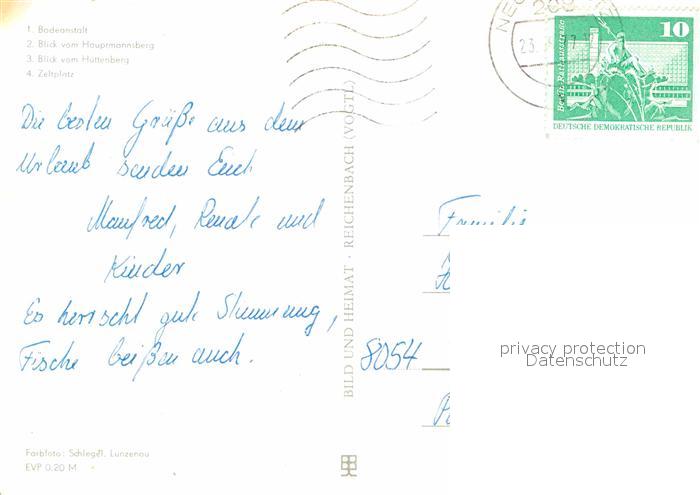 1. Badeanstalt
2. Blick vom Hauptmannsberg
3. Blick vom Hüttenberg
4. Zeltplatz
Die besten Grüße aus dem
Urlaub senden Euch
Manfred, Renate und
Kinder
Es herrscht gute Stimmung,
Fische beißen auch.
Farbfoto: Schlegel, Lunzenau
EVP 0,20 M
BILD UND HEIMAT · REICHENBACH (VOGTL)
10
Berlin·Rathausstraße
DEUTSCHE DEMOKRATISCHE REPUBLIK
23.
Familie
8054
privacy protection
Datenschutz